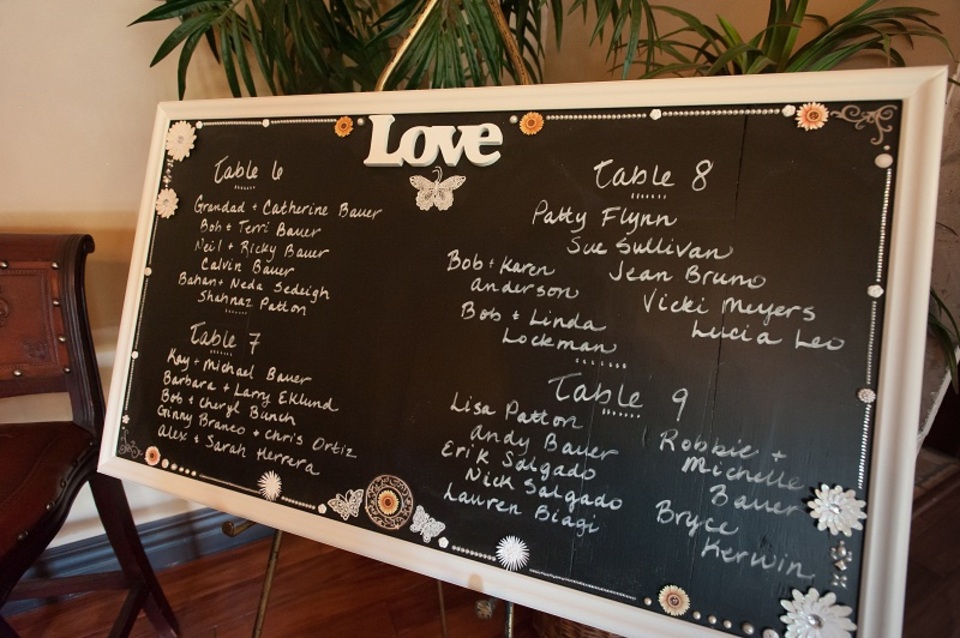 Love
Table 6
Grandad + Catherine Bauer
Bob + Terri Bauer
Neil + Ricky Bauer
Calvin Bauer
Bahan + Neda Sedeigh
Shahnaz Patton
Table 7
Kay + Michael Bauer
Barbara + Larry Eklund
Bob + Cheryl Bunch
Ginny Branco + Chris Ortiz
Alex + Sarah Herrera
Table 8
Patty Flynn
Sue Sullivan
Bob + Karen
Anderson
Jean Bruno
Vicki Meyers
Bob + Linda
Lockman
Lucia Leo
Table 9
Lisa Patton
Andy Bauer
Erik Salgado
Nick Salgado
Lauren Biagi
Robbie +
Michelle
Bauer
Bryce
Kerwin